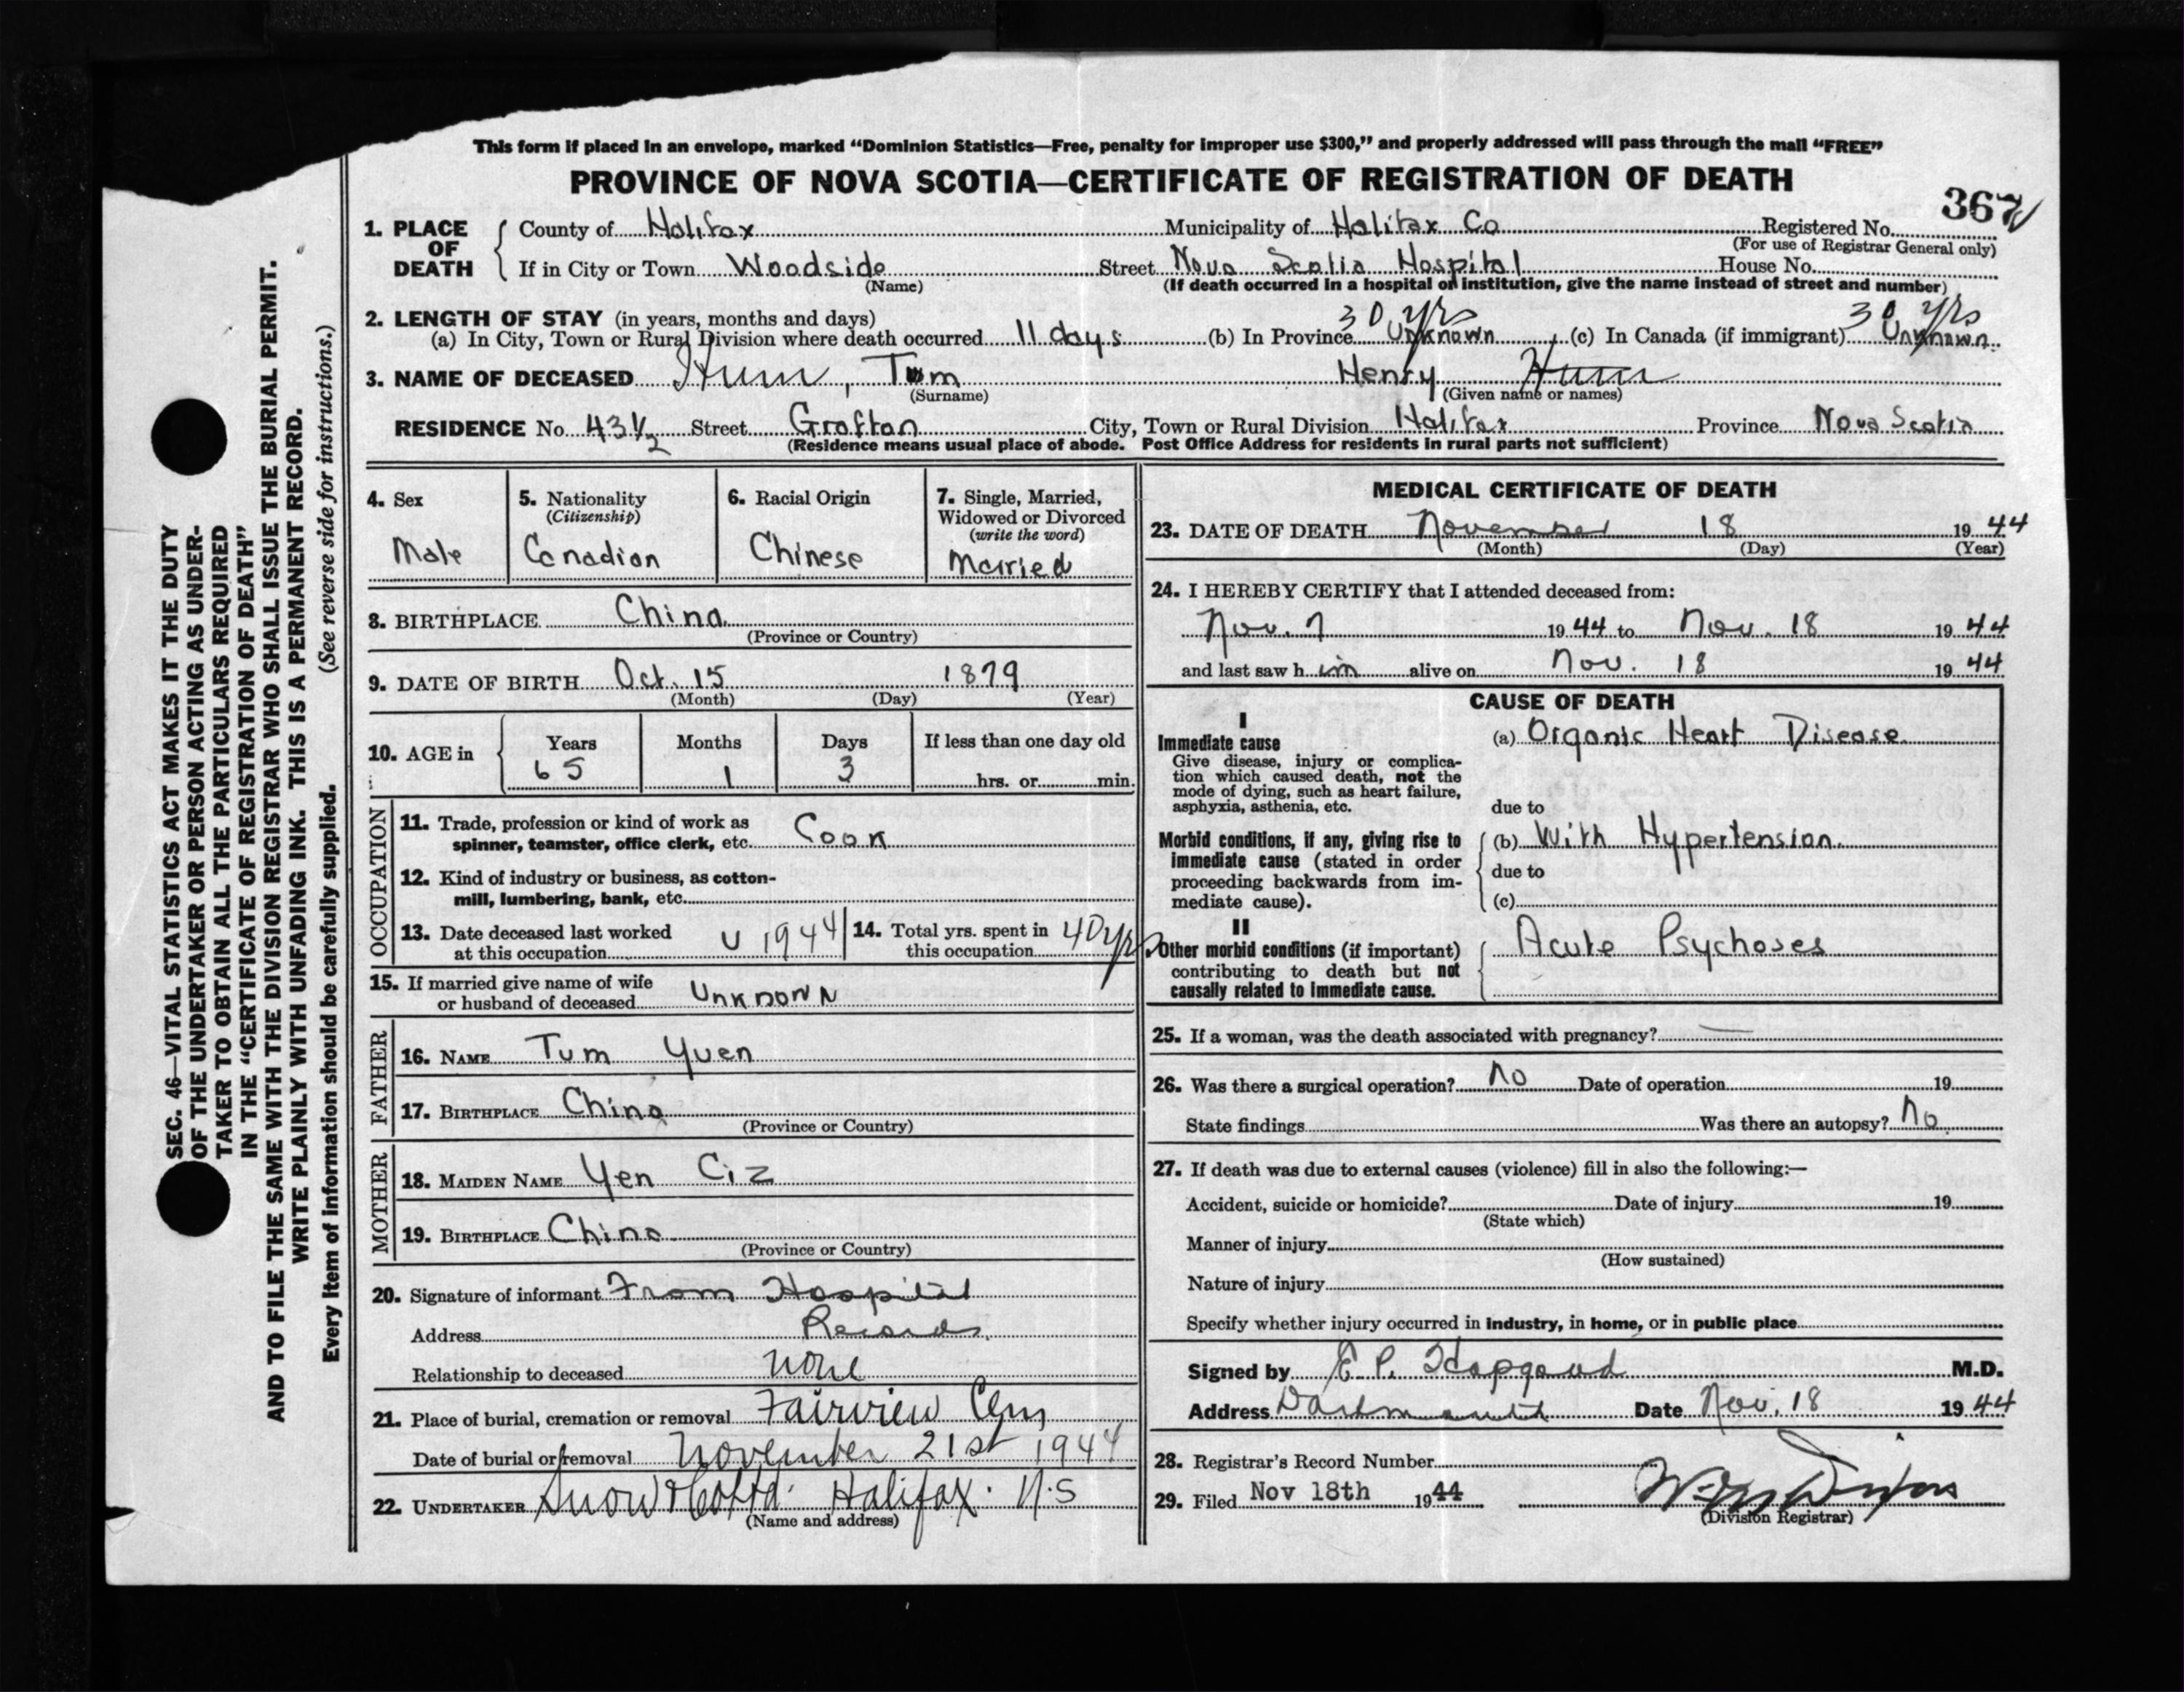 This form if placed in an envelope, marked "Dominion Statistics—Free, penalty for improper use $300," and properly addressed will pass through the mail "FREE"
PROVINCE OF NOVA SCOTIA—CERTIFICATE OF REGISTRATION OF DEATH
367
1. PLACE OF DEATH County of Halifax Municipality of Halifax Co Registered No.
(For use of Registrar General only)
If in City or Town Woodside Street Nova Scotia Hospital House No.
(Name) (If death occurred in a hospital or institution, give the name instead of street and number)
2. LENGTH OF STAY (in years, months and days) 30 yrs 30 yrs
(a) In City, Town or Rural Division where death occurred 11 days (b) In Province Unknown (c) In Canada (if immigrant) Unknown
3. NAME OF DECEASED Hum, Tom Henry Hum
(Surname) (Given name or names)
RESIDENCE No. 43½ Street Grafton City, Town or Rural Division Halifax Province Nova Scotia
(Residence means usual place of abode. Post Office Address for residents in rural parts not sufficient)
4. Sex
Male
5. Nationality
(Citizenship)
Canadian
6. Racial Origin
Chinese
7. Single, Married,
Widowed or Divorced
(write the word)
Married
8. BIRTHPLACE China
(Province or Country)
9. DATE OF BIRTH Oct. 15 1879
(Month) (Day) (Year)
10. AGE in Years Months Days If less than one day old
65 1 3 hrs. or min.
OCCUPATION
11. Trade, profession or kind of work as
spinner, teamster, office clerk, etc. Cook
12. Kind of industry or business, as cotton-
mill, lumbering, bank, etc.
13. Date deceased last worked
at this occupation U 1944
14. Total yrs. spent in
this occupation 40 yrs
15. If married give name of wife
or husband of deceased Unknown
FATHER
16. NAME Tum Yuen
17. BIRTHPLACE China
(Province or Country)
MOTHER
18. MAIDEN NAME Yen Ciz
19. BIRTHPLACE China
(Province or Country)
20. Signature of informant From Hospital
Address Records.
Relationship to deceased none
21. Place of burial, cremation or removal Fairview Cem
Date of burial or removal November 21st 1944
22. UNDERTAKER Snow & Co Ltd. Halifax. N.S
(Name and address)
MEDICAL CERTIFICATE OF DEATH
23. DATE OF DEATH November 18 1944
(Month) (Day) (Year)
24. I HEREBY CERTIFY that I attended deceased from:
Nov. 7 1944 to Nov. 18 1944
and last saw h im alive on Nov. 18 1944
CAUSE OF DEATH
I
Immediate cause
Give disease, injury or complica-
tion which caused death, not the
mode of dying, such as heart failure,
asphyxia, asthenia, etc.
(a) Organic Heart Disease
due to
Morbid conditions, if any, giving rise to
immediate cause (stated in order
proceeding backwards from im-
mediate cause).
(b) With Hypertension.
due to
(c)
II
Other morbid conditions (if important)
contributing to death but not
causally related to immediate cause.
Acute Psychoses
25. If a woman, was the death associated with pregnancy? —
26. Was there a surgical operation? No Date of operation 19
State findings Was there an autopsy? No
27. If death was due to external causes (violence) fill in also the following:—
Accident, suicide or homicide? Date of injury 19
(State which)
Manner of injury
(How sustained)
Nature of injury
Specify whether injury occurred in industry, in home, or in public place
Signed by E P. Hapgood M.D.
Address Dartmouth Date Nov. 18 1944
28. Registrar's Record Number
29. Filed Nov 18th 1944
(Division Registrar)
SEC. 46—VITAL STATISTICS ACT MAKES IT THE DUTY
OF THE UNDERTAKER OR PERSON ACTING AS UNDER-
TAKER TO OBTAIN ALL THE PARTICULARS REQUIRED
IN THE "CERTIFICATE OF REGISTRATION OF DEATH"
AND TO FILE THE SAME WITH THE DIVISION REGISTRAR WHO SHALL ISSUE THE BURIAL PERMIT.
WRITE PLAINLY WITH UNFADING INK. THIS IS A PERMANENT RECORD.
Every item of information should be carefully supplied. (See reverse side for instructions.)